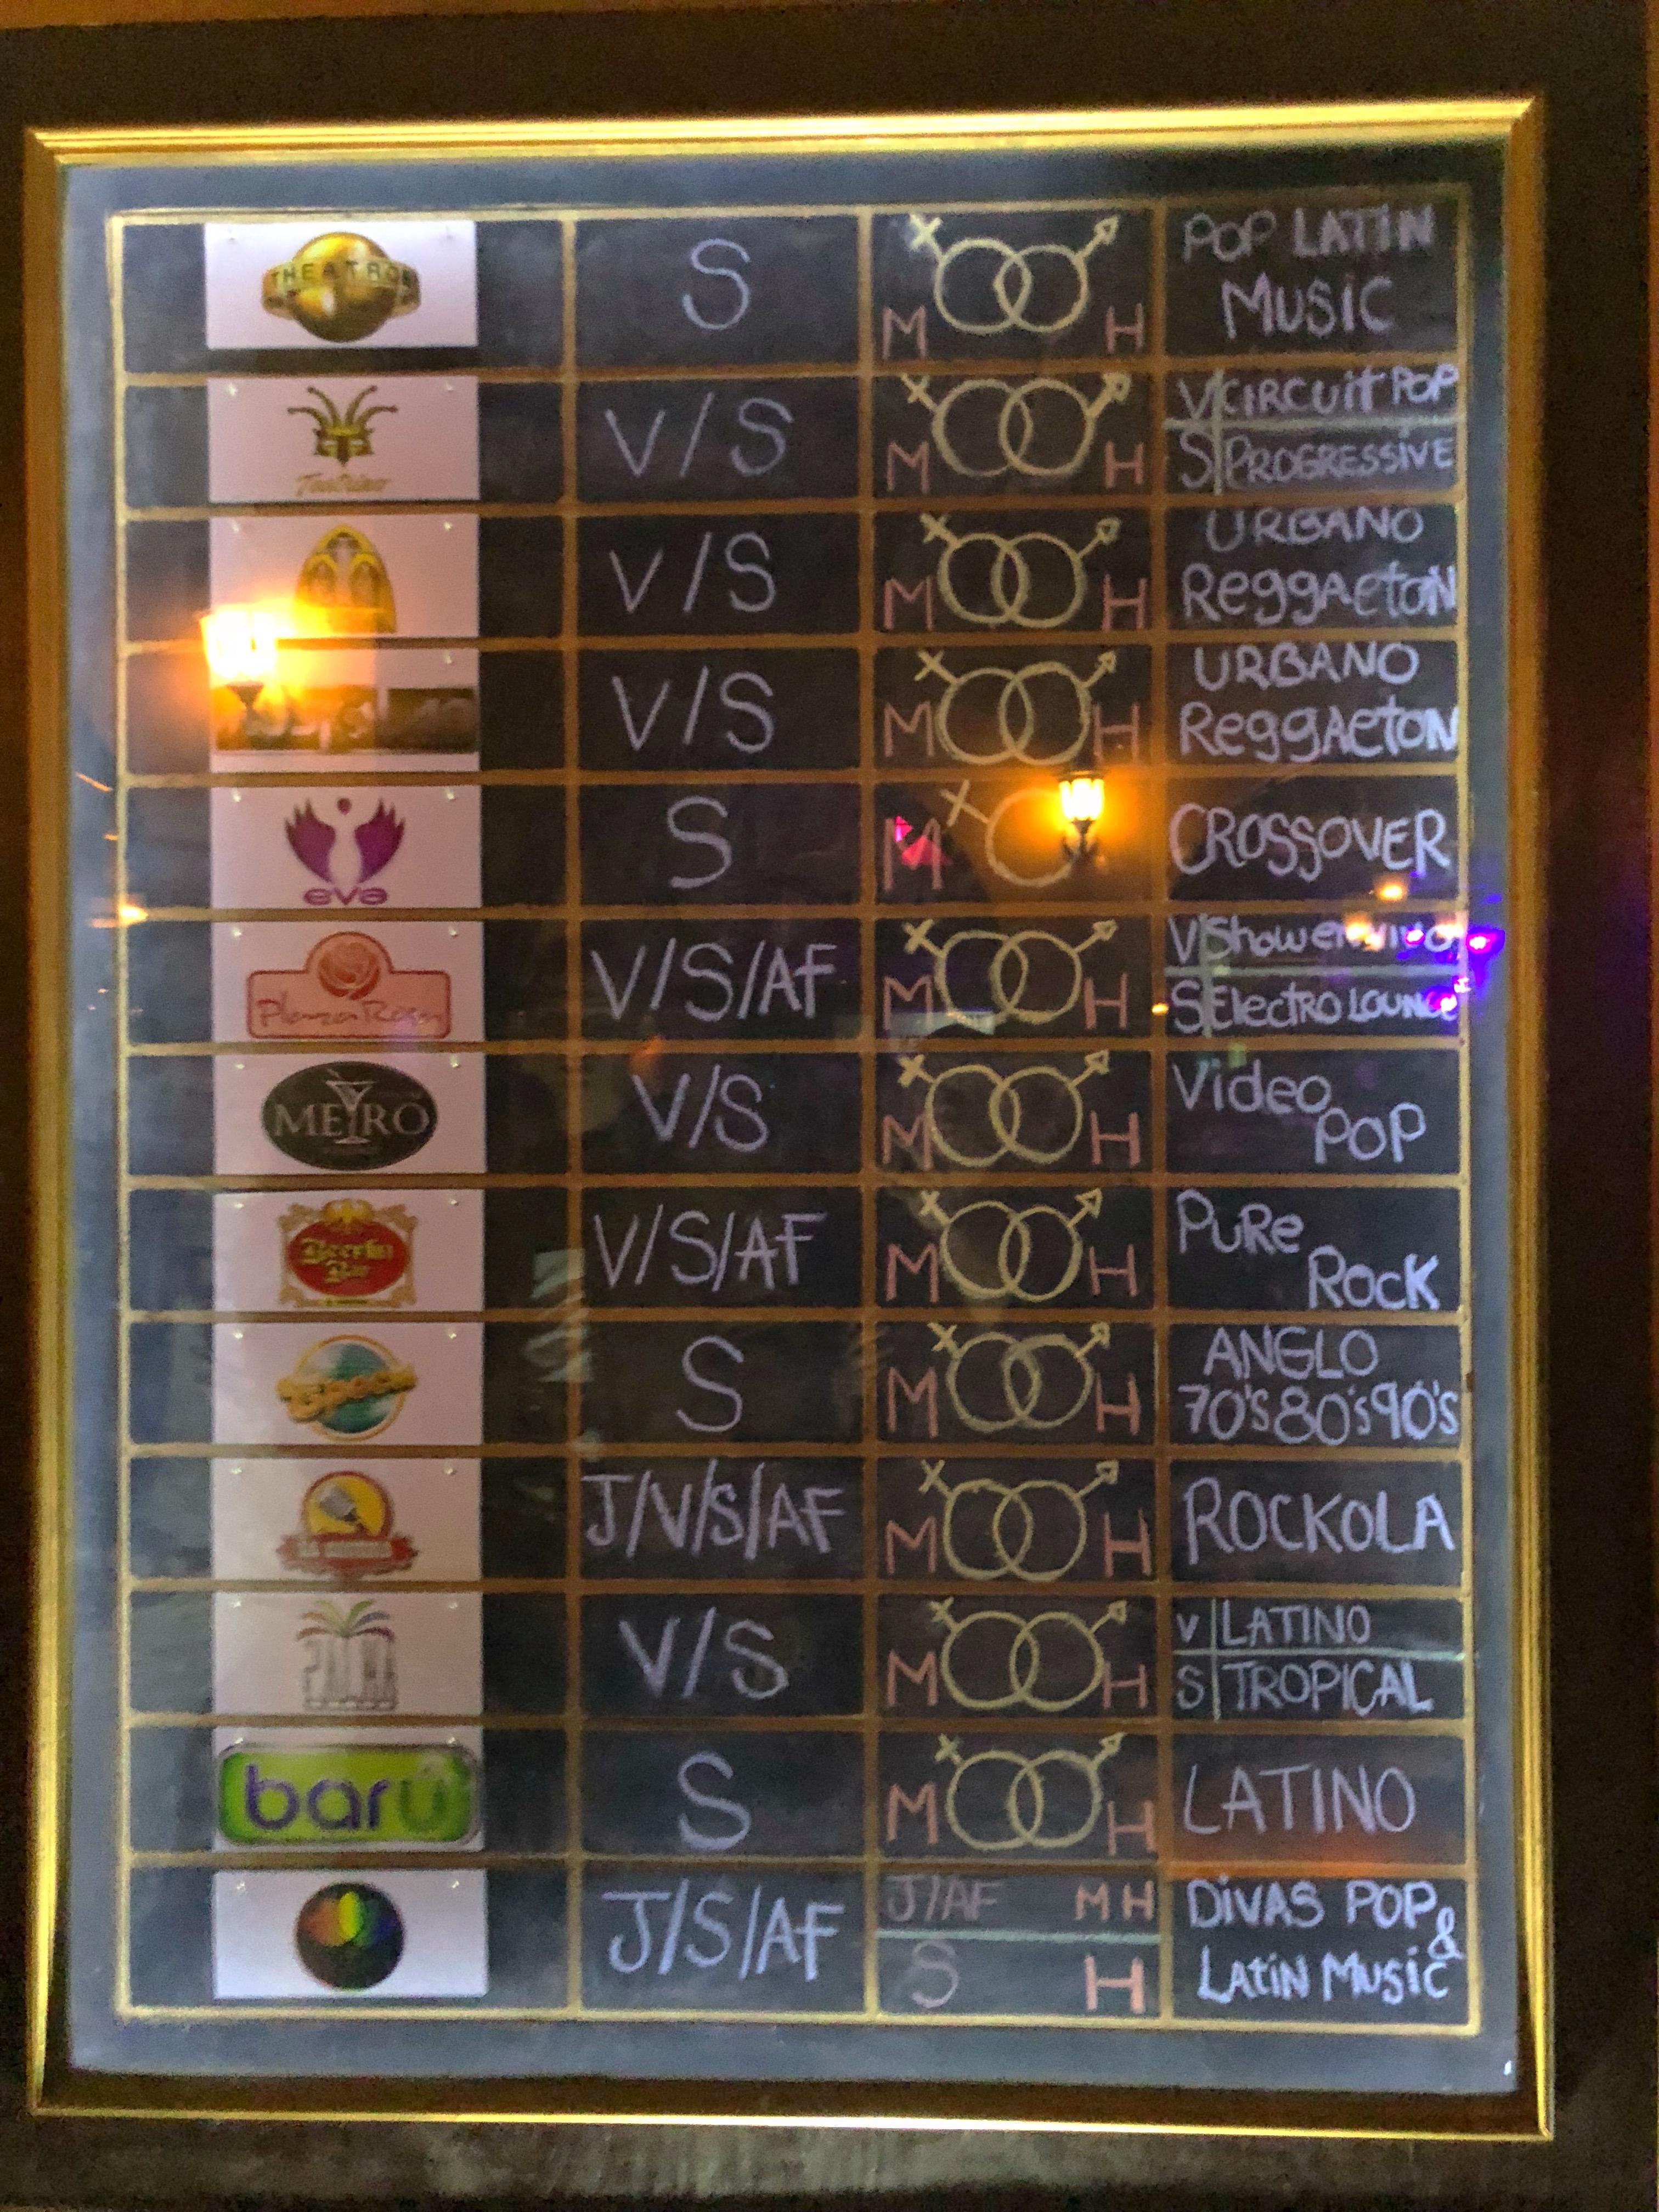 THEATRON
S
M H
POP LATIN
MUSIC
V/S
M H
V CIRCUIT POP
S PROGRESSIVE
V/S
M H
URBANO
ReggAetoN
V/S
M H
URBANO
ReggAetoN
eva
S
M
CROSSOVER
Plaza Rosa
V/S/AF
M H
V Show en vivo
S Electro LOUNGE
METRO
V/S
M H
Video
POP
Beerlin
Bar
V/S/AF
M H
PuRe
RocK
S
M H
ANGLO
70's 80's 90's
J/V/S/AF
M H
ROCKOLA
V/S
M H
V LATINO
S TROPICAL
barú
S
M H
LATINO
J/S/AF
J/AF M H
S H
DiVAS POP &
LAtiN Music